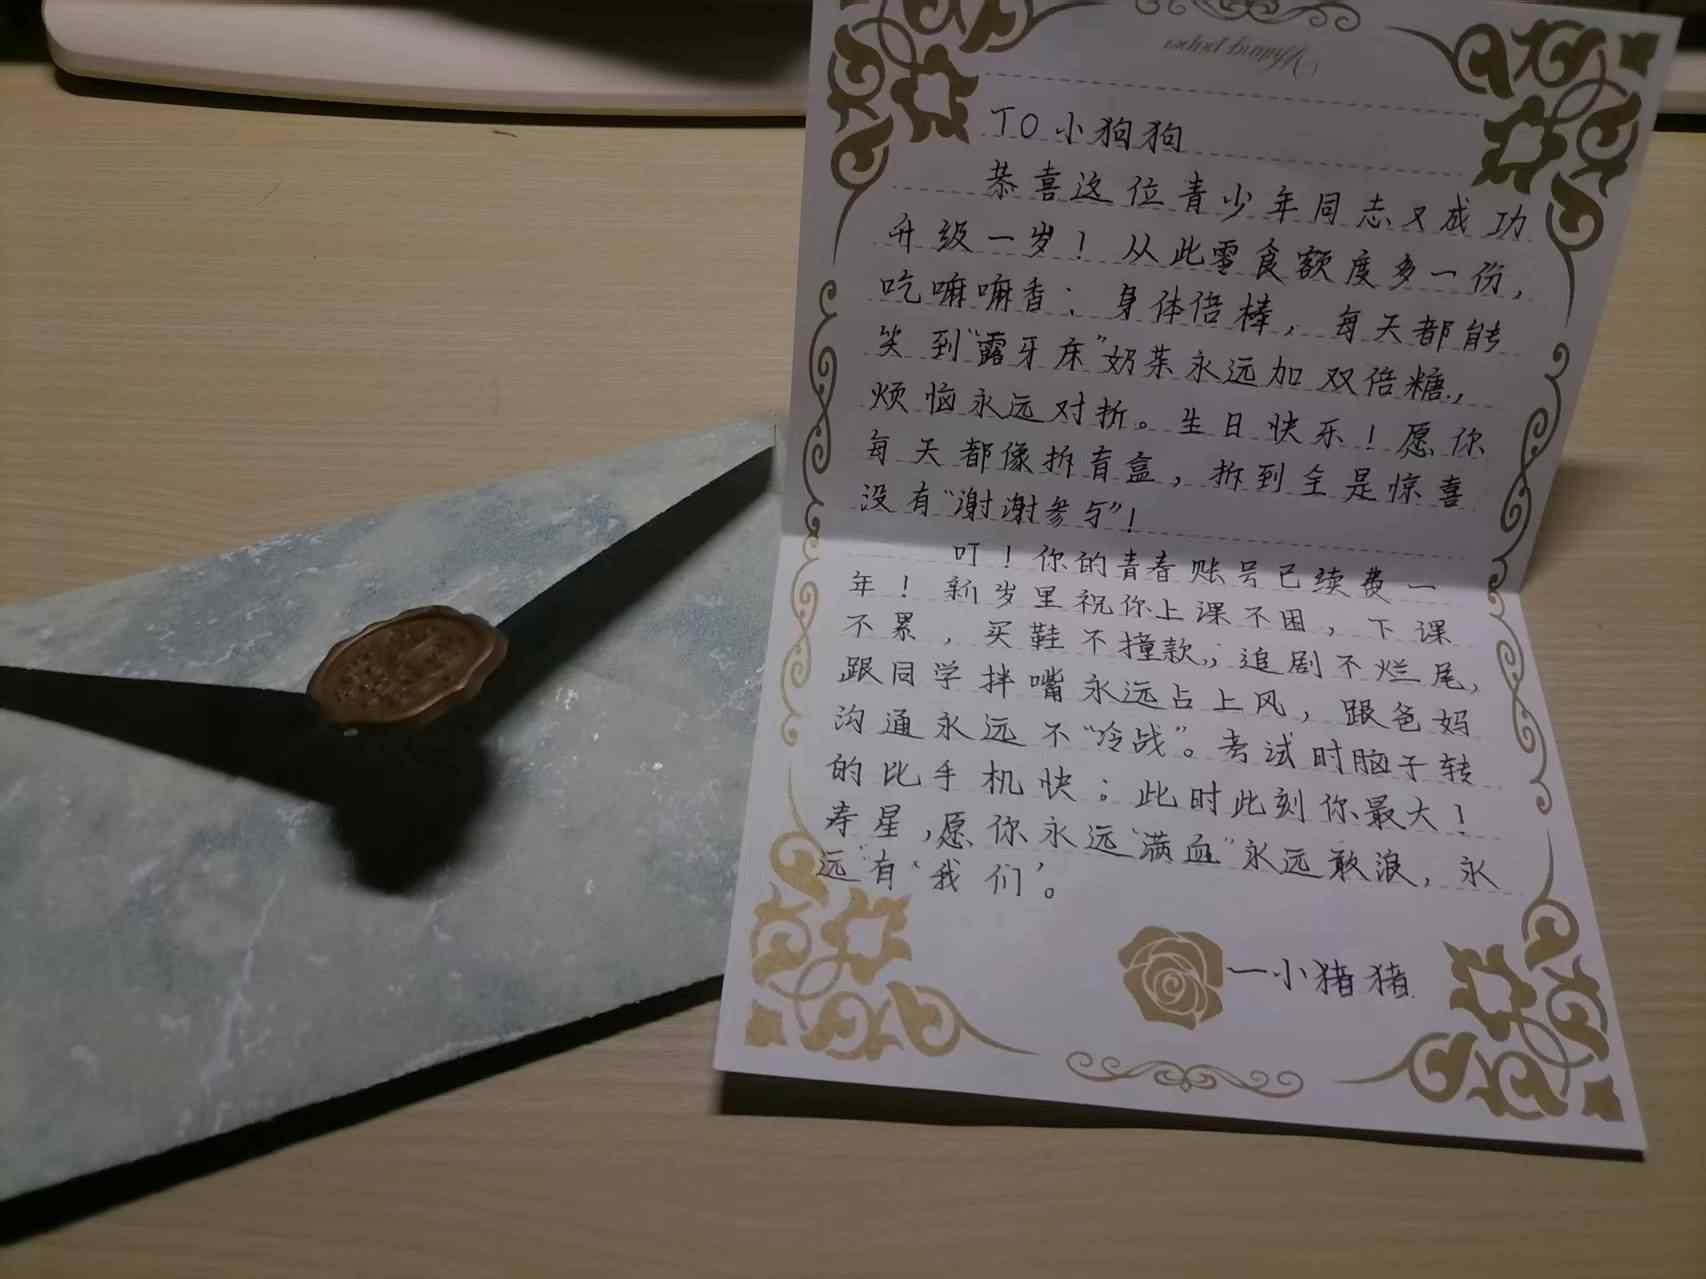 Writing paper
TO 小狗狗
恭喜这位青少年同志又成功
升级一岁！从此零食额度多一份，
吃嘛嘛香；身体倍棒，每天都能
笑到“露牙床”奶茶永远加双倍糖，
烦恼永远对折。生日快乐！愿你
每天都像拆盲盒，拆到全是惊喜
没有“谢谢参与”！
叮！你的青春账号已续费一
年！新岁里祝你上课不困，下课
不累，买鞋不撞款，追剧不烂尾，
跟同学拌嘴永远占上风，跟爸妈
沟通永远不“冷战”。考试时脑子转
的比手机快；此时此刻你最大！
寿星，愿你永远“满血”永远敢浪，永
远有‘我们’。
—小猪猪